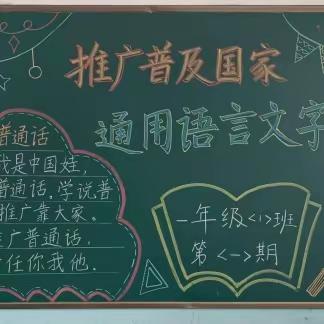 推广普及国家
通用语言文字
普通话
我是中国娃,
普通话.学说普
推广靠大家。
广普通话,
任你我他.
一年级<1>班
第<一>期